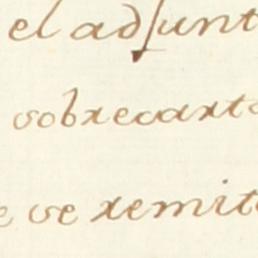 el adjunt
sobrecarta
e se remit